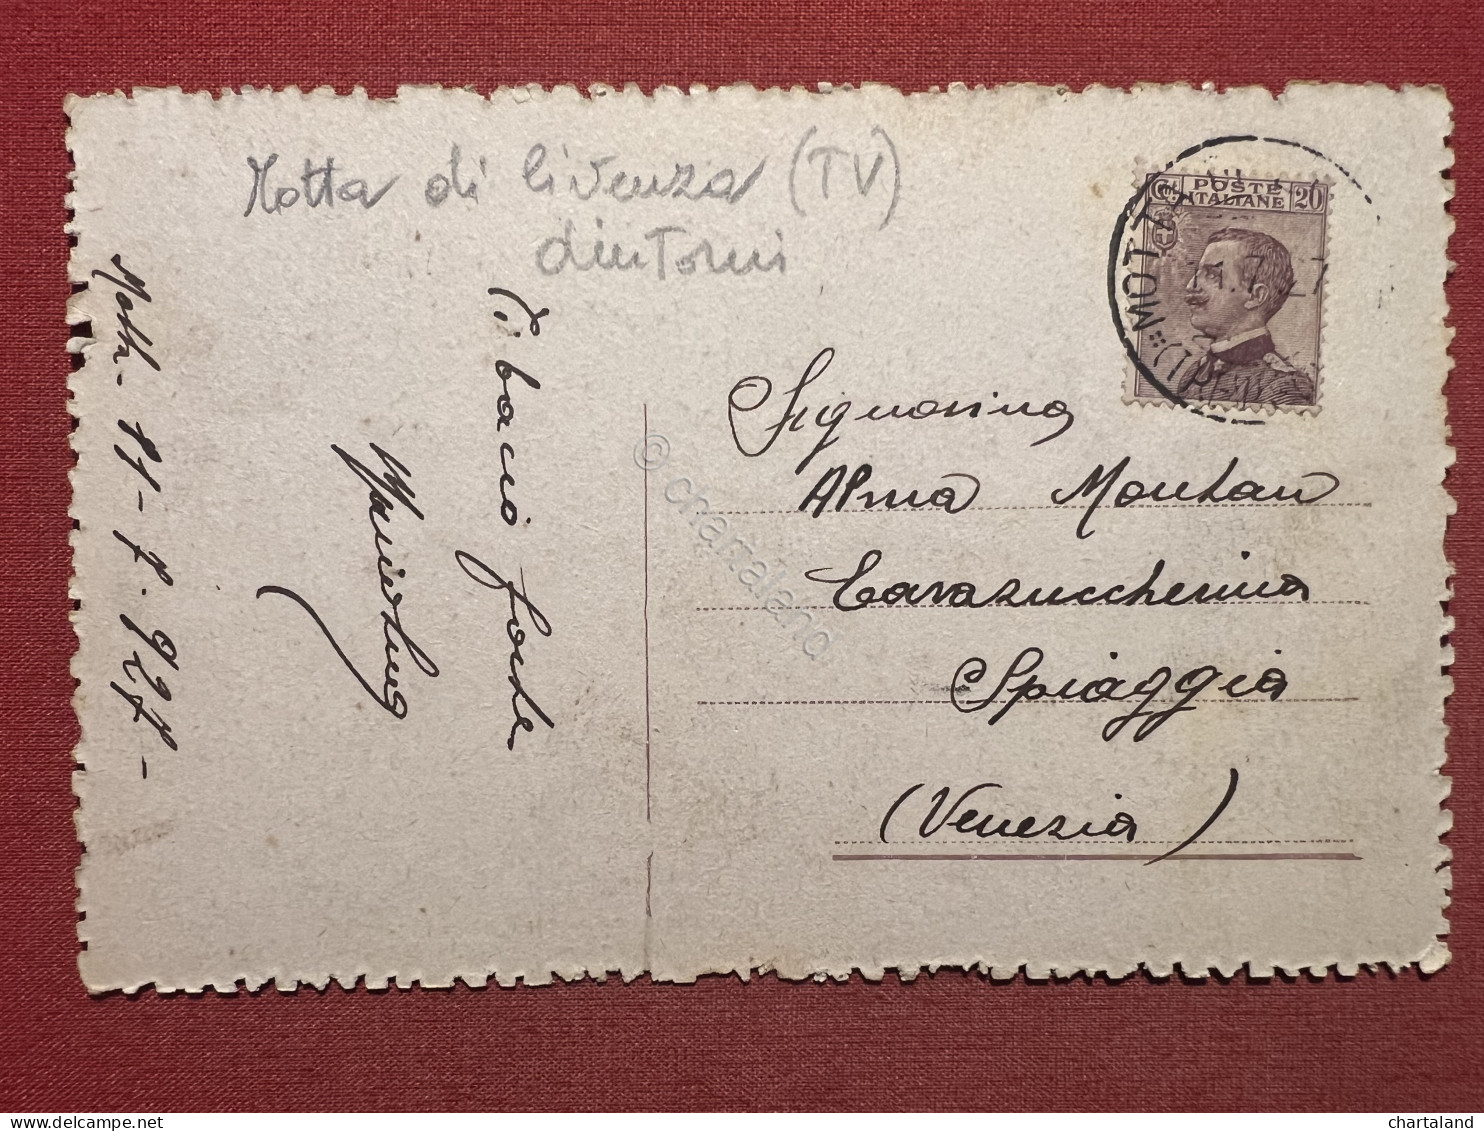 Motta di Livenza (TV)
dintorni
POSTE
ITALIANE
20
MOTTA
(TREVISO)
Motta - 11 - 7 - 927 -
Ti bacio forte
Signorina
Alma Montan
Cavazuccherina
Spiaggia
(Venezia)
© chartaland
chartaland